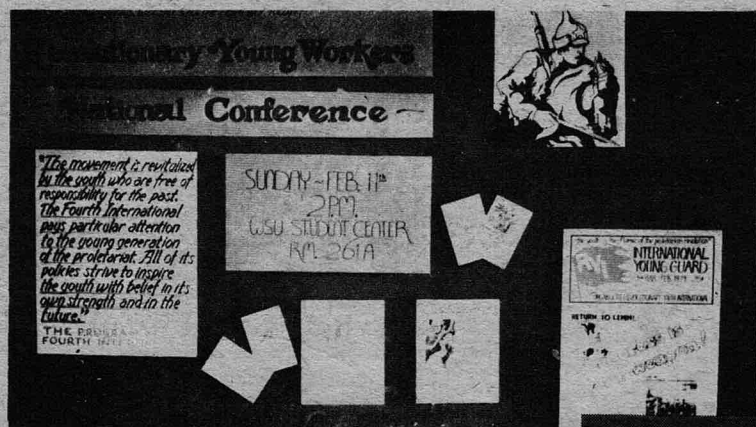 Young Workers
National Conference -
"The movement is revitalized
by the youth who are free of
responsibility for the past.
The Fourth International
pays particular attention
to the young generation
of the proletariat. All of its
policies strive to inspire
the youth with belief in its
own strength and in the
future."
THE PROGRAM
FOURTH
SUNDAY - FEB. 11th
2 P.M.
WSU STUDENT CENTER
RM. 261A
INTERNATIONAL
YOUNG GUARD
RETURN TO LENIN!